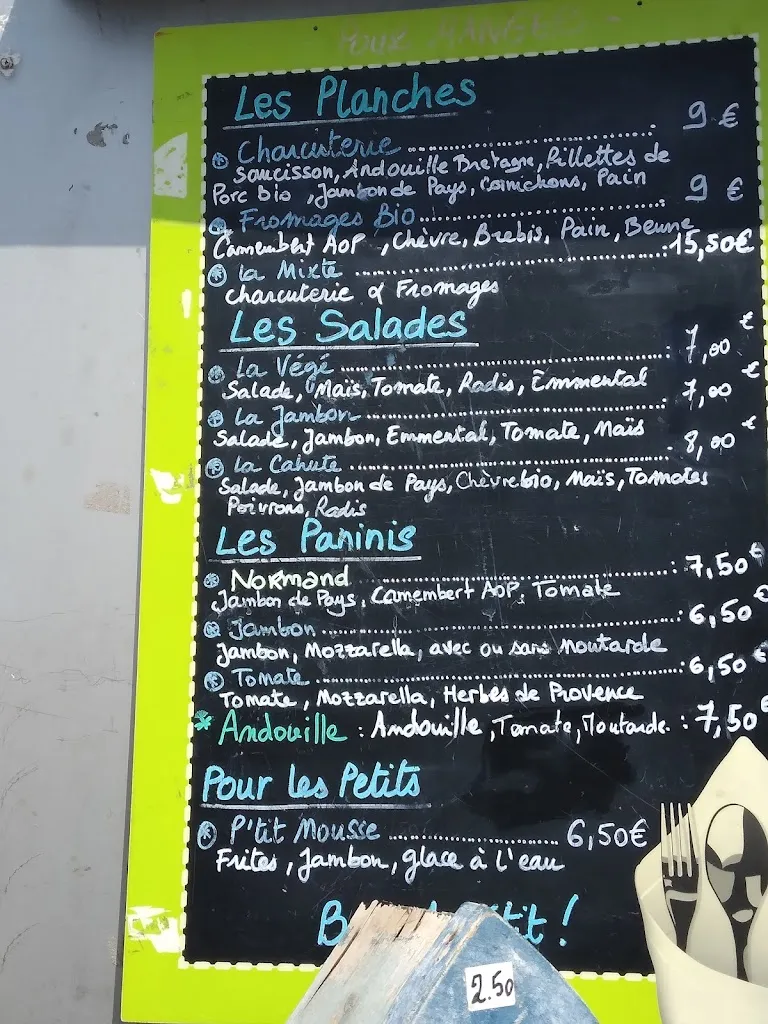 POUR MANGER
Les Planches
Charcuterie ........................ 9 €
Saucisson, Andouille Bretagne, Rillettes de
Porc bio , Jambon de Pays, Cornichons, Pain
Fromages Bio ........................ 9 €
Camembert AOP , Chèvre, Brebis, Pain, Beurre
La Mixte ........................ 15,50€
Charcuterie & Fromages
Les Salades
La Végé ........................ : 7,00 €
Salade, Maïs, Tomate, Radis, Emmental
La Jambon ........................ 7,00 €
Salade, Jambon, Emmental, Tomate, Maïs
La Cahute ........................ 8,00 €
Salade, Jambon de Pays, Chèvre bio, Maïs, Tomates
Poivrons, Radis
Les Paninis
Normand ........................ : 7,50€
Jambon de Pays, Camembert AOP, Tomate
Jambon ........................ : 6,50€
Jambon, Mozzarella, avec ou sans Moutarde
Tomate ........................ : 6,50€
Tomate, Mozzarella, Herbes de Provence
* Andouille : Andouille, Tomate, Moutarde. : 7,50€
Pour les Petits
P'tit Mousse ........................ 6,50€
Frites, Jambon, glace à l'eau
B tit !
2.50